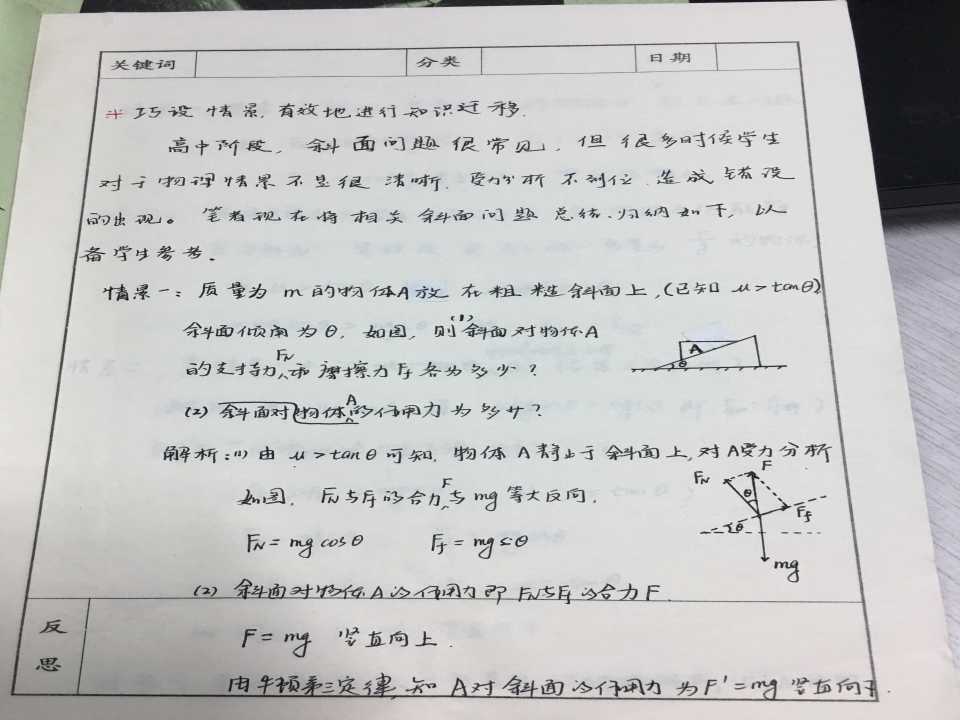 关键词 分类 日期
* 巧设情景,有效地进行知识迁移.
高中阶段,斜面问题很常见,但很多时候学生
对于物理情景不是很清晰,受力分析不到位,造成错误
的出现。笔者现在将相关斜面问题总结、归纳如下,以
备学生参考.
情景一:质量为m的物体A放在粗糙斜面上,(已知 μ>tanθ)
斜面倾角为θ,如图,则(1)斜面对物体A
的支持力FN和摩擦力Ff各为多少?
A
θ
(2)斜面对物体A的作用力为多少?
解析:(1)由μ>tanθ可知,物体A静止于斜面上,对A受力分析
如图,FN与Ff的合力F与mg等大反向,
FN F
θ
Ff
θ
mg
FN=mgcosθ Ff=mgsinθ
(2)斜面对物体A的作用力即FN与Ff的合力F
反思
F=mg 竖直向上.
由牛顿第三定律知A对斜面的作用力为F'=mg竖直向下.